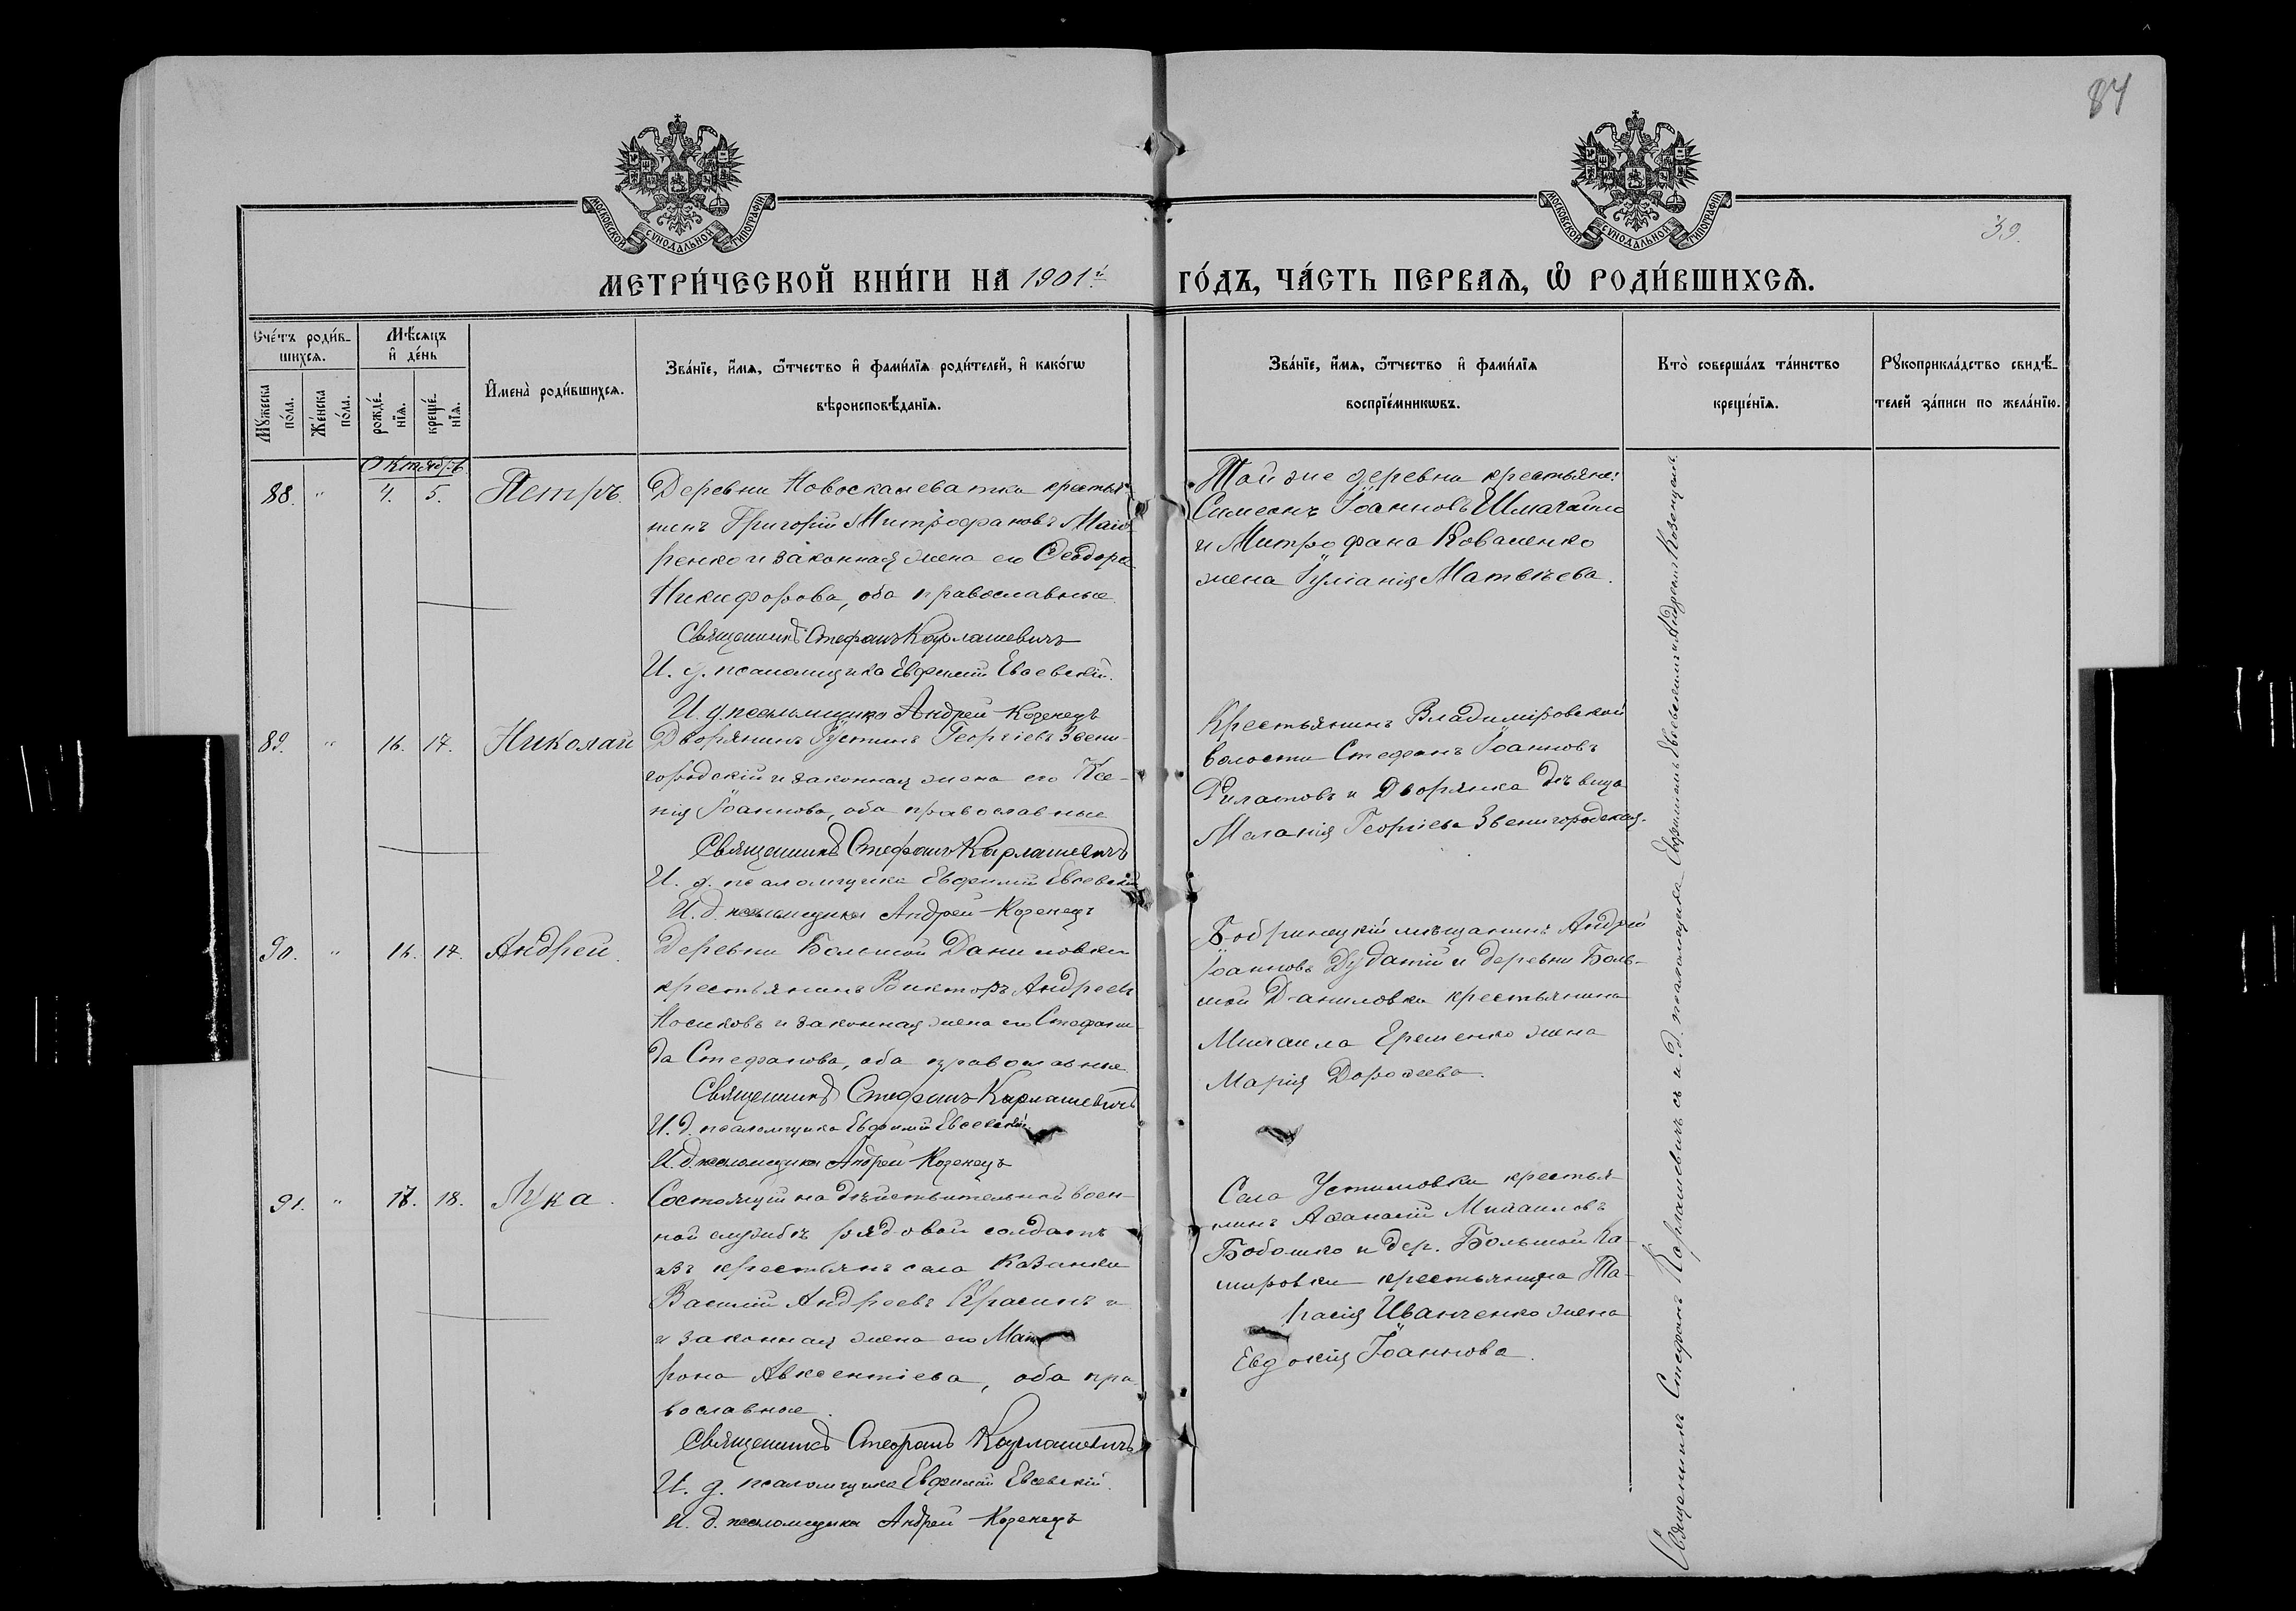 84
39.
МОСКОВСКОЙ СѴНОДАЛЬНОЙ ТИПОГРАФІИ
МОСКОВСКОЙ СѴНОДАЛЬНОЙ ТИПОГРАФІИ
МЕТРИ́ЧЕСКОЙ КНИ́ГИ НА 1901й ГО́ДЪ, ЧА́СТЬ ПЕРВАѦ, Ѡ РОДИ́ВШИХСѦ.
Сче́тъ роди́в-
шихсѧ.
Мꙋ́жеска по́ла.
Же́нска по́ла.
Мѣ́сѧцъ
и де́нь
рожде́-
нїѧ.
креще́-
нїѧ.
Имена̀ роди́вшихсѧ.
Зва́нїе, и́мѧ, ѻ́тчество и фами́лїѧ роди́телей, и како́гѡ
вѣроисповѣ́данїѧ.
Зва́нїе, и́мѧ, ѻ́тчество и фами́лїѧ
воспрїе́мникѡвъ.
Кто̀ соверша́лъ та́инство
креще́нїѧ.
Рꙋкоприкла́дство свидѣ́-
телей за́писи по жела́нїю.
Октябрь
88. " 4. 5. Петръ.
Деревни Новоскалеватки крестья-
нинъ Григорій Митрофановъ Мою-
ренко и законная жена его Ѳеодора
Никифорова, оба православные.
Священникъ Стефанъ Карлашевичъ
И. д. псаломщика Евфимій Евсевскій.
И. д. псаломщика Андрей Козенецъ
Той же деревни крестьяне:
Симеонъ Іоанновъ Шмагайло
и Митрофана Коваленко
жена Іуліанія Матвѣева.
89. " 16. 17. Николай
Дворянинъ Іустинъ Георгіевъ Звени-
городскій и законная жена его Ксе-
нія Іоаннова, оба православные
Священникъ Стефанъ Карлашевичъ
И. д. псаломщика Евфимій Евсевскій
И. д. псаломщика Андрей Козенецъ
Крестьянинъ Владиміровской
волости Стефанъ Іоанновъ
Филатовъ и Дворянка дѣвица
Меланія Георгіева Звенигородская.
90. " 16. 17. Андрей.
Деревни Большой Даниловки
крестьянинъ Викторъ Андреевъ
Носиковъ и законная жена его Стефани-
да Стефанова, оба православные.
Священникъ Стефанъ Карлашевичъ
И. д. псаломщика Евфимій Евсевскій
И. д. псаломщика Андрей Козенецъ
Бобринецкій мѣщанинъ Андрей
Іоанновъ Дудатій и деревни Боль-
шой Даниловки крестьянина
Михаила Еременко жена
Марія Дороѳеева.
91. " 17. 18. Лука.
Состоящій на дѣйствительной воен-
ной службѣ рядовой солдатъ
изъ крестьянъ села Казанки
Василій Андреевъ Красинъ и
и законная жена его Мат-
рона Авксентіева, оба пра-
вославные.
Священникъ Стефанъ Карлашевичъ
И. д. псаломщика Евфимій Евсевскій.
И. д. псаломщика Андрей Козенецъ
Села Устиновки крестья-
нинъ Аѳанасій Михаиловъ
Бобошко и дер. Большой Ка-
мировки крестьянина Та-
расія Иванченко жена
Евдокія Іоаннова.
Священникъ Стефанъ Карлашевичъ съ и. д. псаломщика Евфиміемъ Евсевскимъ и Андреемъ Козенцемъ.